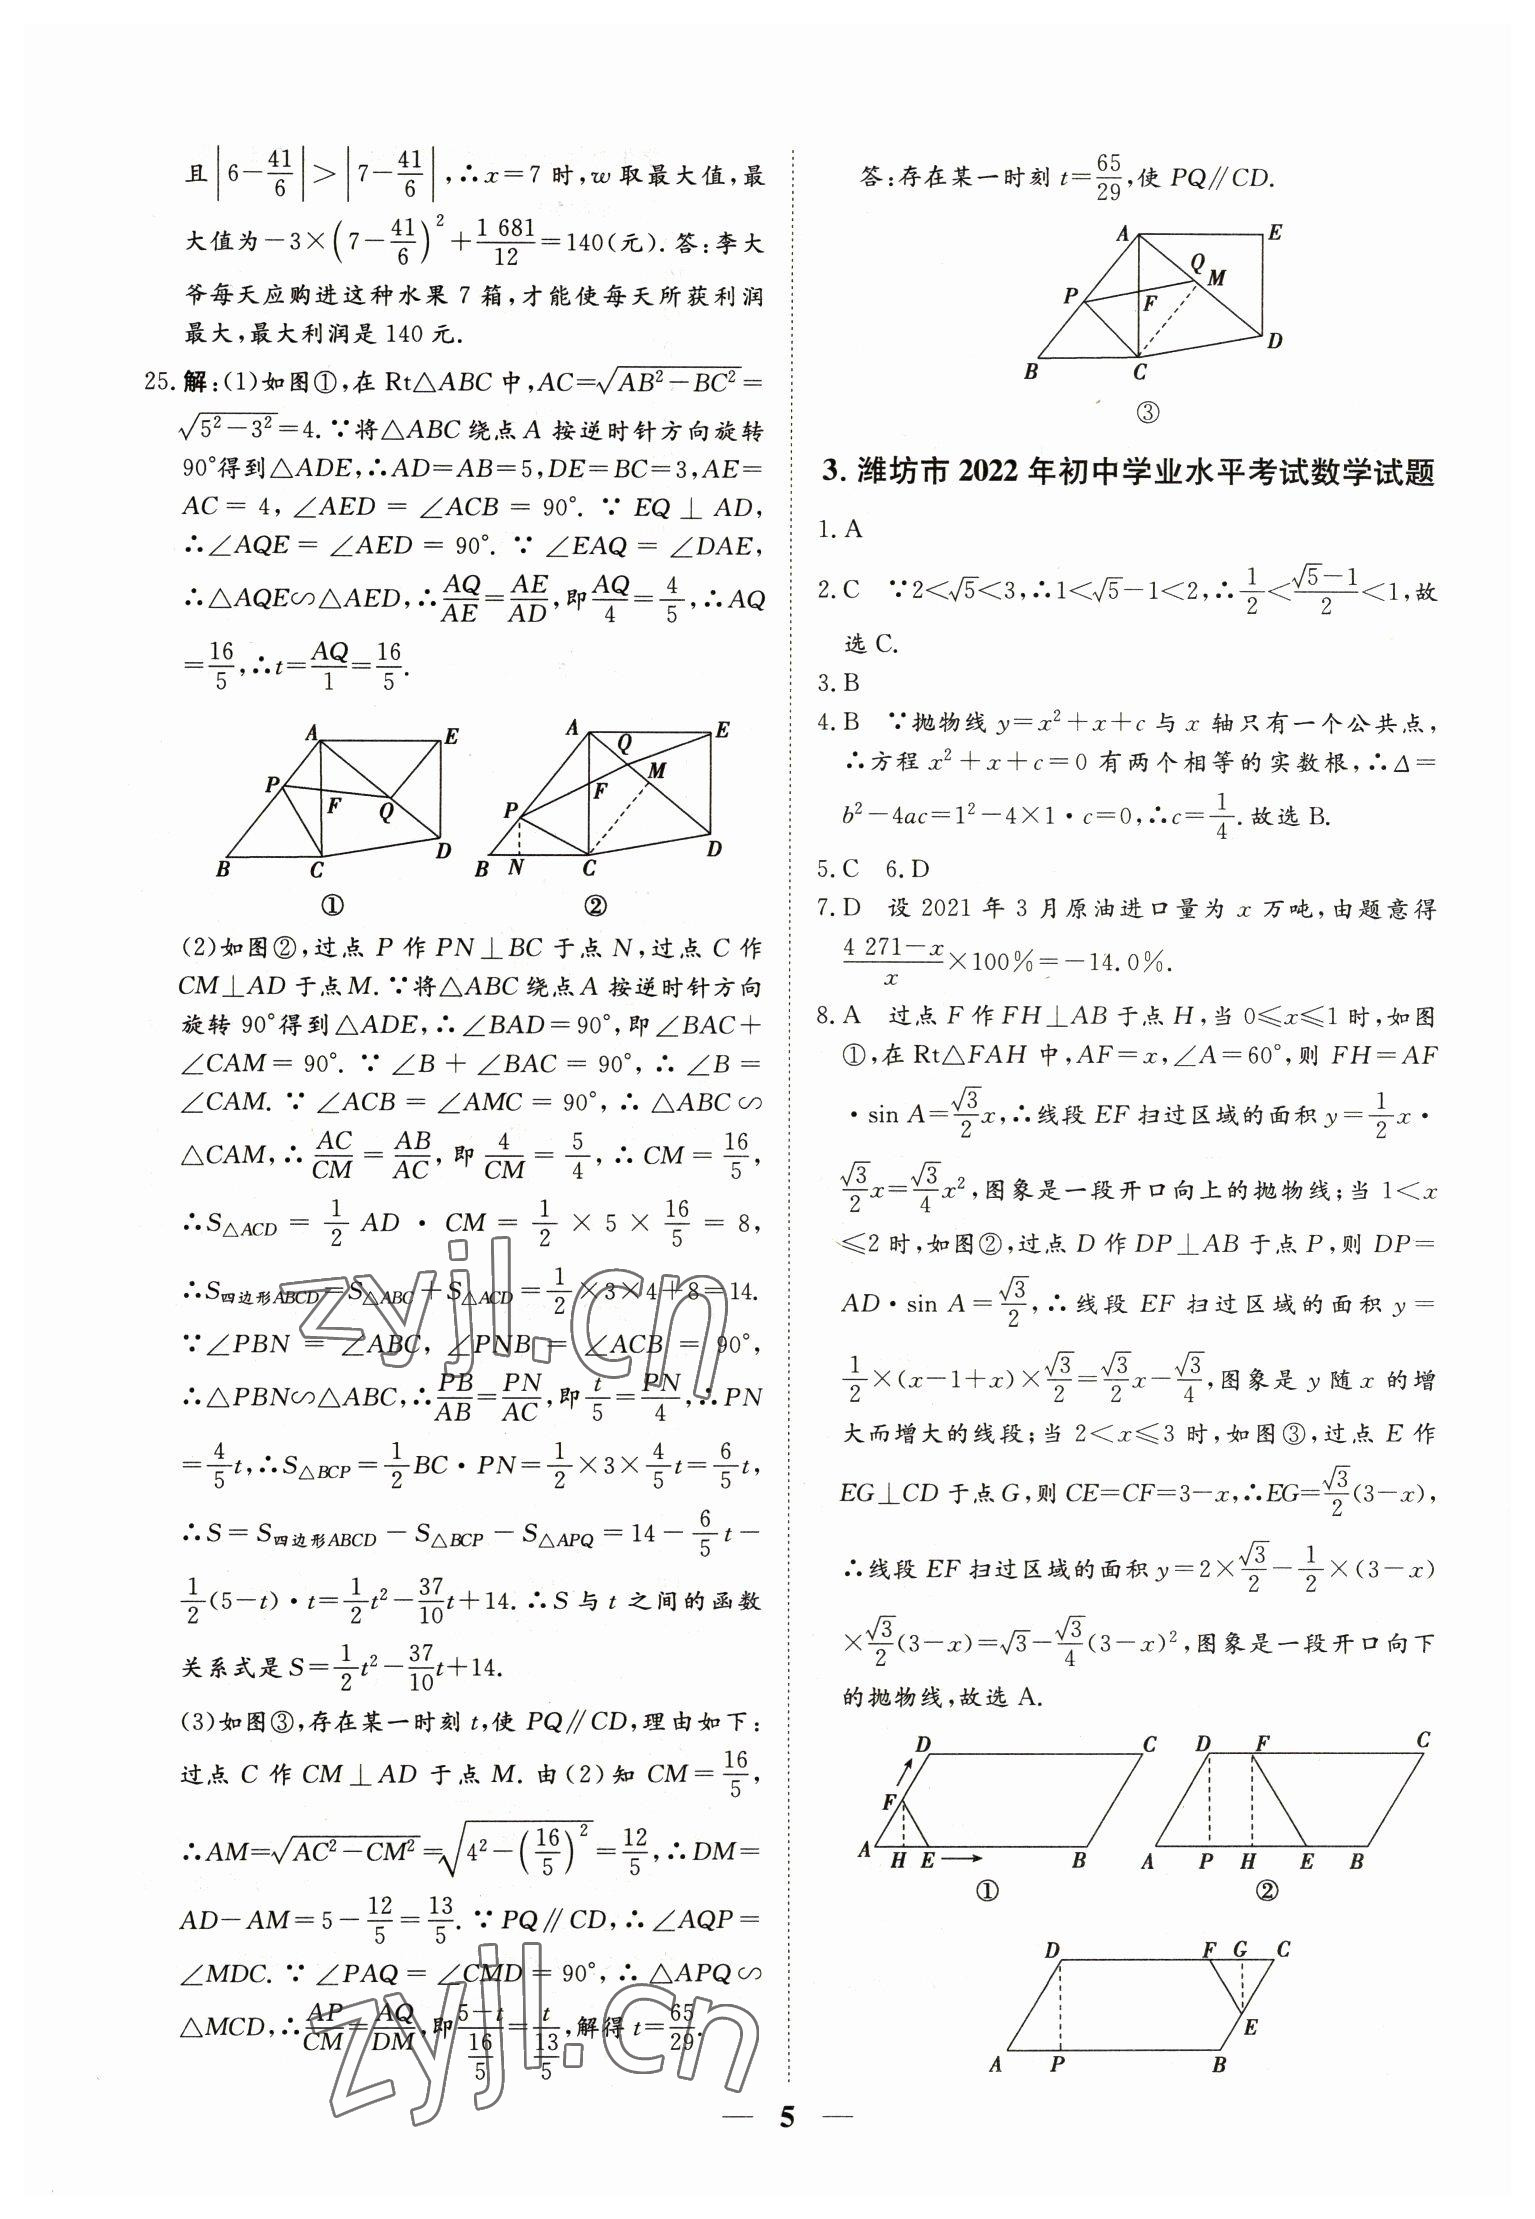 且|6−41/6|>|7−41/6|,∴x=7 时,w 取最大值,最
大值为−3×(7−41/6)²+1 681/12=140(元).答:李大
爷每天应购进这种水果 7 箱,才能使每天所获利润
最大,最大利润是 140 元.
25. 解:(1)如图①,在 Rt△ABC 中,AC=√(AB²−BC²)=
√(5²−3²)=4.∵将△ABC 绕点 A 按逆时针方向旋转
90°得到△ADE,∴AD=AB=5,DE=BC=3,AE=
AC = 4, ∠AED = ∠ACB = 90°. ∵ EQ ⊥ AD,
∴∠AQE = ∠AED = 90°. ∵ ∠EAQ = ∠DAE,
∴△AQE∽△AED,∴AQ/AE=AE/AD,即AQ/4=4/5,∴AQ
=16/5,∴t=AQ/1=16/5.
A E P F Q B C D
①
A E Q M P F B N C D
②
(2)如图②,过点 P 作 PN⊥BC 于点 N,过点 C 作
CM⊥AD 于点 M.∵将△ABC 绕点 A 按逆时针方向
旋转 90°得到△ADE,∴∠BAD=90°,即∠BAC+
∠CAM = 90°. ∵ ∠B + ∠BAC = 90°, ∴ ∠B =
∠CAM. ∵ ∠ACB = ∠AMC = 90°, ∴ △ABC∽
△CAM,∴AC/CM=AB/AC,即4/CM=5/4,∴CM=16/5,
∴S△ACD = 1/2 AD · CM = 1/2 × 5 × 16/5 = 8,
∴S四边形ABCD=S△ABC+S△ACD=1/2×3×4+8=14.
∵∠PBN = ∠ABC, ∠PNB = ∠ACB = 90°,
∴△PBN∽△ABC,∴PB/AB=PN/AC,即t/5=PN/4,∴PN
=4/5t,∴S△BCP=1/2BC·PN=1/2×3×4/5t=6/5t,
∴S=S四边形ABCD−S△BCP−S△APQ=14−6/5t−
1/2(5−t)·t=1/2t²−37/10t+14.∴S 与 t 之间的函数
关系式是 S=1/2t²−37/10t+14.
(3)如图③,存在某一时刻 t,使 PQ∥CD,理由如下:
过点 C 作 CM⊥AD 于点 M. 由(2)知 CM=16/5,
∴AM=√(AC²−CM²)=√(4²−(16/5)²)=12/5,∴DM=
AD−AM=5−12/5=13/5.∵PQ∥CD,∴∠AQP=
∠MDC. ∵ ∠PAQ = ∠CMD = 90°, ∴ △APQ∽
△MCD,∴AP/CM=AQ/DM,即(5−t)/(16/5)=t/(13/5),解得 t=65/29.
答:存在某一时刻 t=65/29,使 PQ∥CD.
A E Q M P F D B C
③
3. 潍坊市 2022 年初中学业水平考试数学试题
1. A
2. C ∵2<√5<3,∴1<√5−1<2,∴1/2<(√5−1)/2<1,故
选 C.
3. B
4. B ∵抛物线 y=x²+x+c 与 x 轴只有一个公共点,
∴方程 x²+x+c=0 有两个相等的实数根,∴Δ=
b²−4ac=1²−4×1·c=0,∴c=1/4.故选 B.
5. C 6. D
7. D 设 2021 年 3 月原油进口量为 x 万吨,由题意得
(4 271−x)/x×100%=−14.0%.
8. A 过点 F 作 FH⊥AB 于点 H,当 0⩽x⩽1 时,如图
①,在 Rt△FAH 中,AF=x,∠A=60°,则 FH=AF
·sin A=√3/2x,∴线段 EF 扫过区域的面积 y=1/2x·
√3/2x=√3/4x²,图象是一段开口向上的抛物线;当 1<x
⩽2 时,如图②,过点 D 作 DP⊥AB 于点 P,则 DP=
AD·sin A=√3/2,∴线段 EF 扫过区域的面积 y=
1/2×(x−1+x)×√3/2=√3/2x−√3/4,图象是 y 随 x 的增
大而增大的线段;当 2<x⩽3 时,如图③,过点 E 作
EG⊥CD 于点 G,则 CE=CF=3−x,∴EG=√3/2(3−x),
∴线段 EF 扫过区域的面积 y=2×√3/2−1/2×(3−x)
×√3/2(3−x)=√3−√3/4(3−x)²,图象是一段开口向下
的抛物线,故选 A.
D C F A H E B
①
D F C A P H E B
②
D F G C E A P B
— 5 —
zyjl.cn
zyjl.cn